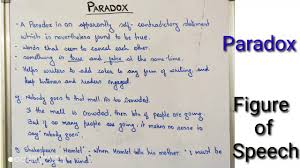 PARADOX
→ A Paradox is an apparently self-contradictory statement
which is nevertheless found to be true.
- Words that seem to cancel each other.
- Something is true and false at the same time.
- Helps writers to add color to any form of writing and keep
interest and readers engaged.
eg Nobody goes to that mall. As too crowded.
If the mall is crowded, then lots of people are going.
But if so many people are going, it makes no sense to
say "nobody goes".
Shakespeare 'Hamlet' - When Hamlet tells his mother 'I must be
cruel only to be kind'.
Paradox
Figure
of
Speech